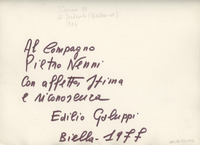 Al Compagno
Pietro Nenni
Con affetto, stima
e riconoscenza
Edilio Galuppi
Biella - 1977